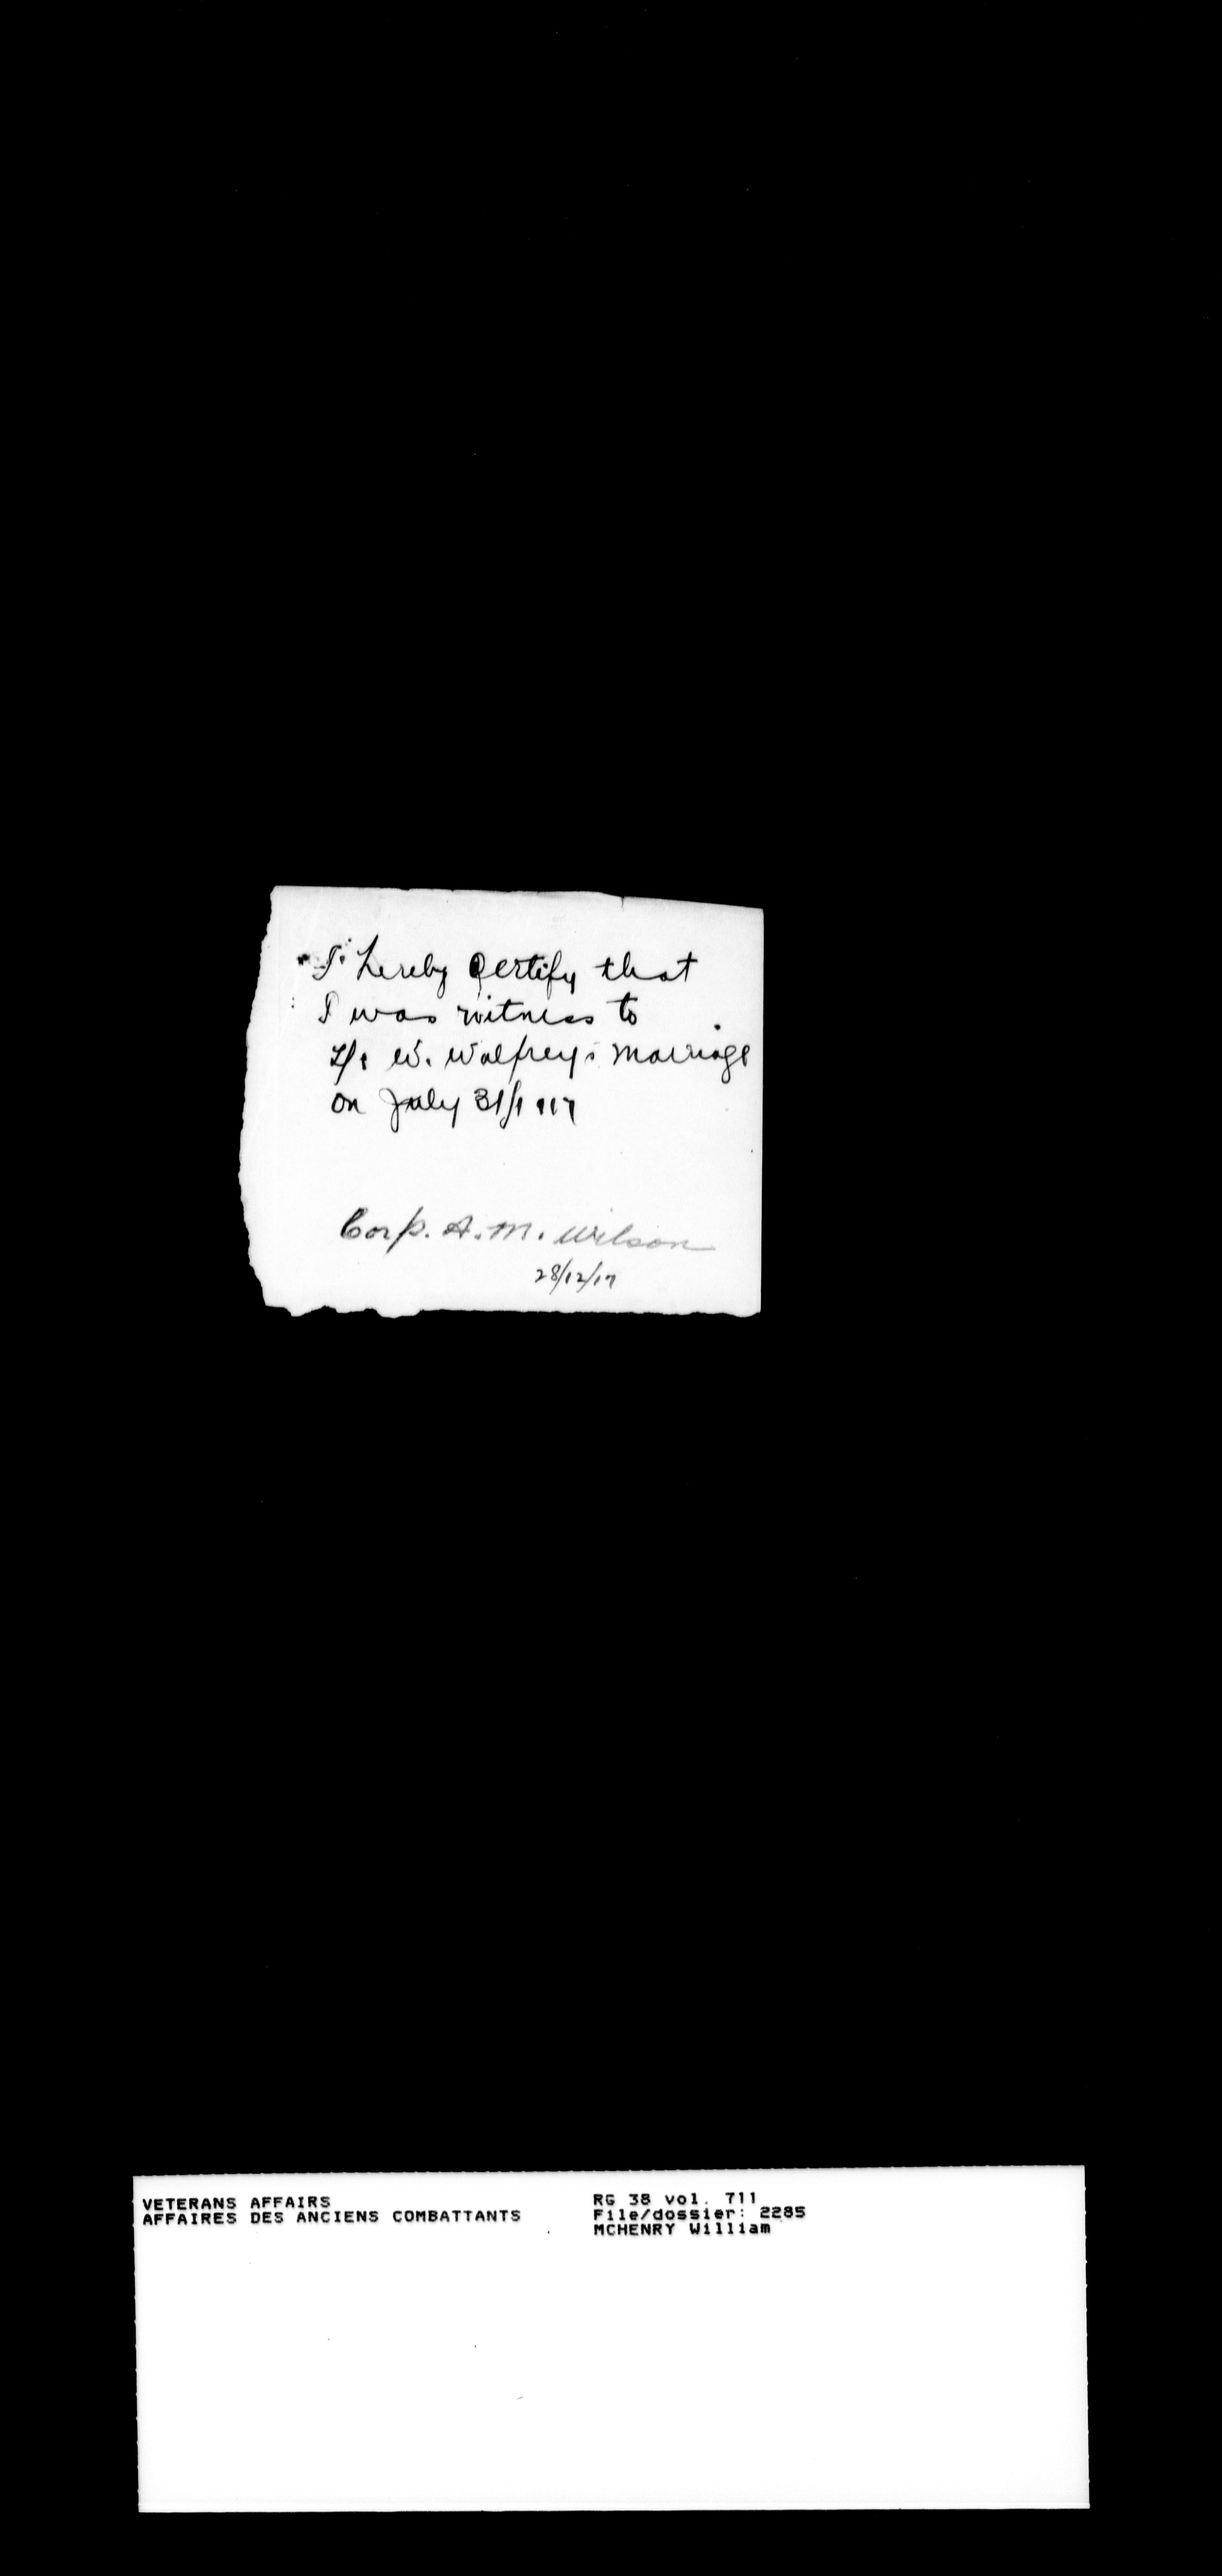 I hereby certify that
I was witness to
W. Wolfrey's marriage
on July 31/1917
Corp. A. M. Wilson
28/12/17
VETERANS AFFAIRS
AFFAIRES DES ANCIENS COMBATTANTS
RG 38 vol. 711
File/dossier: 2285
MCHENRY William